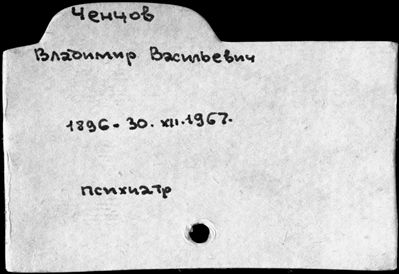 Ченцов
Владимир Васильевич
1896 - 30. XII. 1967.
психиатр